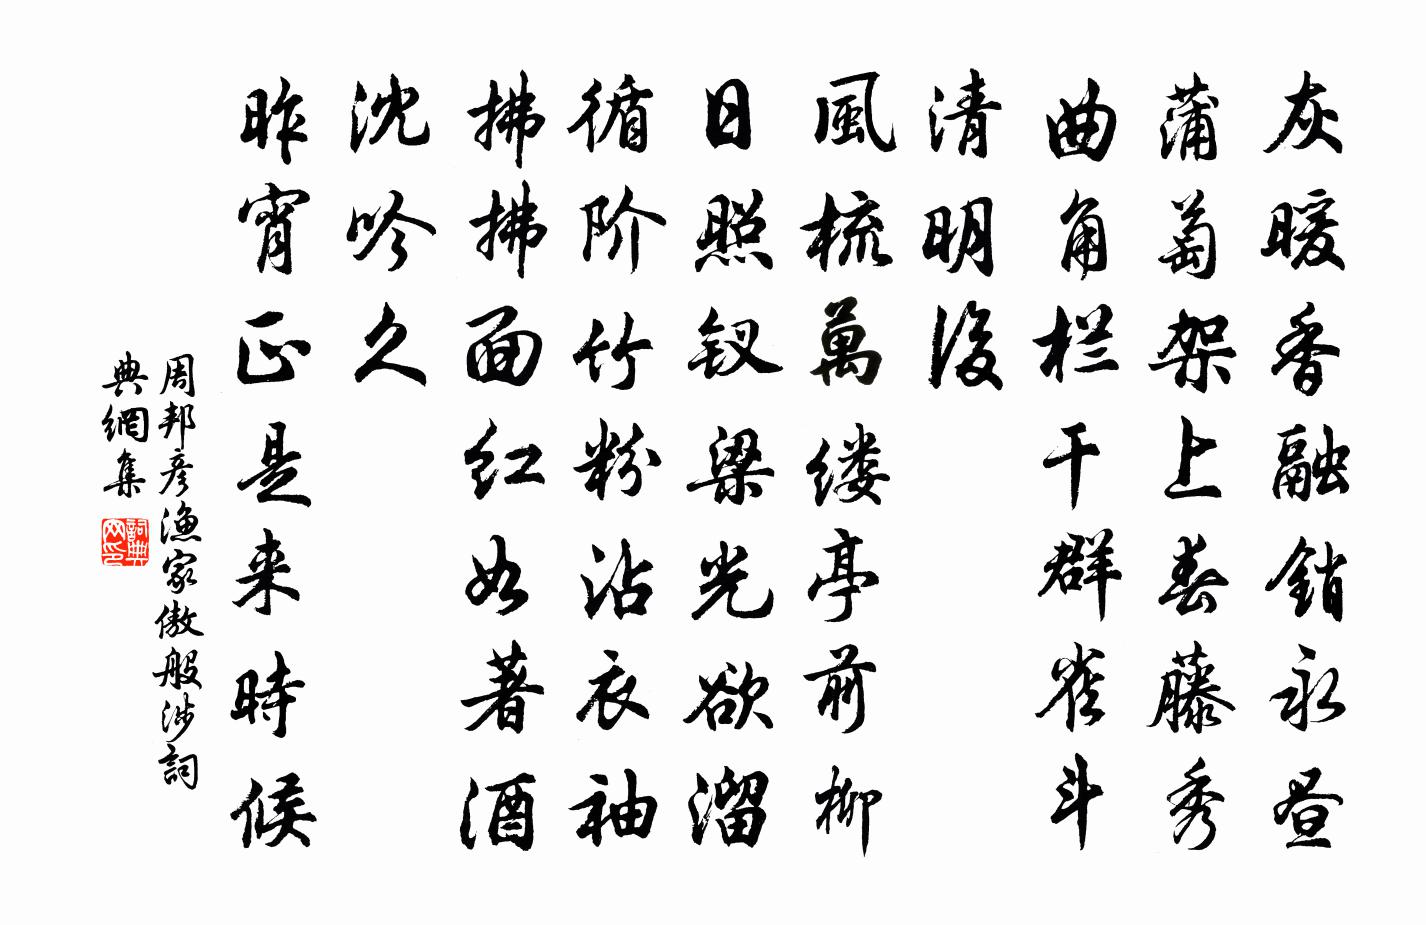 灰暖香融銷永昼
蒲萄架上春藤秀
曲角栏干群雀斗
清明後
風梳萬缕亭前柳
日照钗梁光欲溜
循阶竹粉沾衣袖
拂拂面红如著酒
沈吟久
昨宵正是来時候
周邦彦漁家傲般涉詞
典網集
詞典
网印